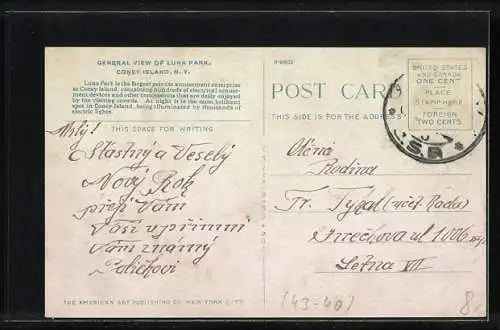 GENERAL VIEW OF LUNA PARK,
CONEY ISLAND, N. Y.
Luna Park is the largest private amusement enterprise
at Coney Island, containing hundreds of electrical amuse-
ment devices and other concessions that are daily enjoyed
by the visiting crowds. At night it is the most brilliant
spot in Coney Island, being illuminated by thousands of
electric lights.
THIS SPACE FOR WRITING
Milý!
Štastný a Veselý
Nový Rok
přeji Vám
Vaši upřímní
Vám známý
THE AMERICAN ART PUBLISHING CO. NEW YORK CITY
POST CARD
THIS SIDE IS FOR THE ADDRESS
UNITED STATES
AND CANADA
ONE CENT
PLACE
STAMP HERE
FOREIGN
TWO CENTS
Ctěná
Rodina
Fr. Tygal (učit. Rada)
ul 1006
Letná VII
(43-40)
8.